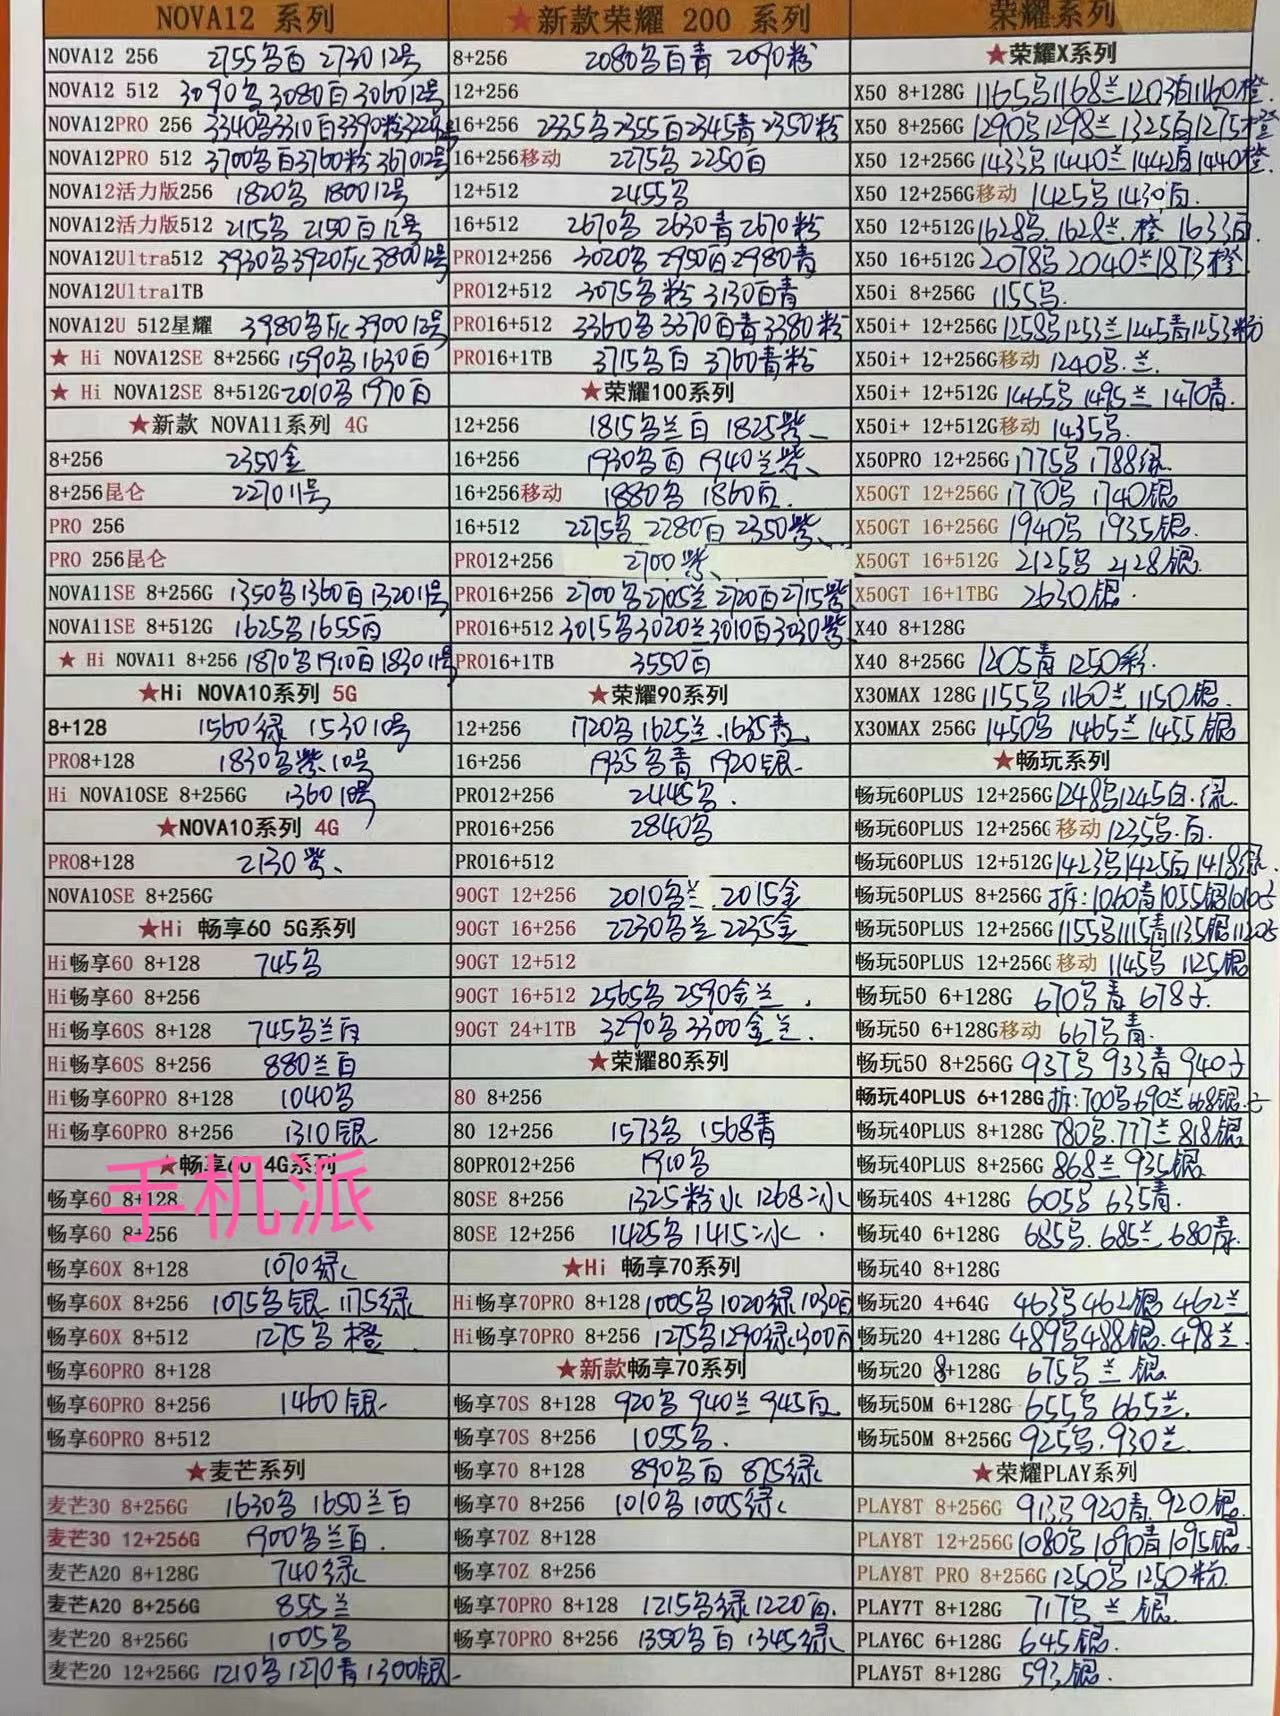 NOVA12 系列
NOVA12 256 2755名白 2730 12号
NOVA12 512 3090名 3080白 3060 12号
NOVA12PRO 256 3340名 3310白 3390粉
NOVA12PRO 512 3700名白 3760粉 3670 12号
NOVA12活力版256 1820名 1800 12号
NOVA12活力版512 2115名 2150白 12号
NOVA12Ultra512 3930名 3920灰 3800 12号
NOVA12Ultra1TB
NOVA12U 512星耀 3980名灰 3900 12号
★ Hi NOVA12SE 8+256G 1590名 1630白
★ Hi NOVA12SE 8+512G 2010名 1970白
★新款 NOVA11系列 4G
8+256 2350金
8+256昆仑 2270 11号
PRO 256
PRO 256昆仑
NOVA11SE 8+256G 1350名 1360白 1320 11号
NOVA11SE 8+512G 1625名 1655白
★ Hi NOVA11 8+256 1870名 1910白 1830 11号
★Hi NOVA10系列 5G
8+128 1560绿 1530 10号
PRO8+128 1830名紫 10号
Hi NOVA10SE 8+256G 1360 10号
★NOVA10系列 4G
PRO8+128 2130紫、
NOVA10SE 8+256G
★Hi 畅享60 5G系列
Hi畅享60 8+128 745名
Hi畅享60 8+256
Hi畅享60S 8+128 745名兰白
Hi畅享60S 8+256 880兰白
Hi畅享60PRO 8+128 1040名
Hi畅享60PRO 8+256 1310银
★畅享60 4G系列
手机派
畅享60 8+128
畅享60 8+256
畅享60X 8+128 1070绿
畅享60X 8+256 1075名银 1175绿
畅享60X 8+512 1275名橙
畅享60PRO 8+128
畅享60PRO 8+256 1460银
畅享60PRO 8+512
★麦芒系列
麦芒30 8+256G 1630名 1650兰白
麦芒30 12+256G 1900名兰白.
麦芒A20 8+128G 740绿
麦芒A20 8+256G 855兰
麦芒20 8+256G 1005名
麦芒20 12+256G 1210名 1270青 1300银
★新款荣耀 200 系列
8+256 2080名白青 2090粉
12+256
16+256 2335名 2355白 2345青 2350粉
16+256移动 2275名 2250白
12+512 2455名
16+512 2670名 2630青 2670粉
PRO12+256 3020名 2950白 2980青
PRO12+512 3075名粉 3130白青
PRO16+512 3360名 3370白青 3380粉
PRO16+1TB 3715名白 3760青粉
★荣耀100系列
12+256 1815名兰白 1825紫、
16+256 1930名白 1940兰紫、
16+256移动 1880名 1860白.
16+512 2275名 2280白 2350紫、
PRO12+256 2700紫、
PRO16+256 2700名 2705兰 2720白 2715紫
PRO16+512 3015名 3020兰 3010白 3030紫
PRO16+1TB 3550白
★荣耀90系列
12+256 1720名 1625兰.1635青
16+256 1935名青 1920银
PRO12+256 2445名.
PRO16+256 2840名
PRO16+512
90GT 12+256 2010名兰.2015金
90GT 16+256 2230名兰 2235金
90GT 12+512
90GT 16+512 2565名 2590金兰.
90GT 24+1TB 3290名 3300金兰.
★荣耀80系列
80 8+256
80 12+256 1573名 1568青
80PRO12+256 1910名
80SE 8+256 1325粉水 1268冰
80SE 12+256 1425名 1415冰.
★Hi 畅享70系列
Hi畅享70PRO 8+128 1005名 1020绿 1030白
Hi畅享70PRO 8+256 1275名 1290绿 1300白
★新款畅享70系列
畅享70S 8+128 920名 940兰 945白
畅享70S 8+256 1055名.
畅享70 8+128 890名白 875绿
畅享70 8+256 1010名 1005绿
畅享70Z 8+128
畅享70Z 8+256
畅享70PRO 8+128 1215名绿 1220白.
畅享70PRO 8+256 1350名白 1345绿
荣耀系列
★荣耀X系列
X50 8+128G 1165名 1168兰 1203白 1160橙.
X50 8+256G 1290名 1298兰 1325白 1275橙
X50 12+256G 1433名 1440兰 1442白 1440橙.
X50 12+256G移动 1425名 1430白.
X50 12+512G 1628名.1628兰.橙 1633白
X50 16+512G 2078名 2040兰 1873橙
X50i 8+256G 1155名.
X50i+ 12+256G 1258名 1253兰 1245青 1253粉
X50i+ 12+256G移动 1240名.兰.
X50i+ 12+512G 1465名 1495兰 1470青.
X50i+ 12+512G移动 1435名.
X50PRO 12+256G 1775名 1788绿.
X50GT 12+256G 1770名 1740银
X50GT 16+256G 1940名 1935银.
X50GT 16+512G 2125名 2128银
X50GT 16+1TBG 2630银.
X40 8+128G
X40 8+256G 1205青 1250彩.
X30MAX 128G 1155名 1160兰 1150银.
X30MAX 256G 1450名 1465兰 1455银
★畅玩系列
畅玩60PLUS 12+256G 1248名 1245白.绿.
畅玩60PLUS 12+256G 移动 1235名.白.
畅玩60PLUS 12+512G 1423名 1425白 1418绿.
畅玩50PLUS 8+256G 拆:1060青 1055银
畅玩50PLUS 12+256G 1155名 1115青 1135银
畅玩50PLUS 12+256G 移动 1145名 1125银
畅玩50 6+128G 670名青 678子.
畅玩50 6+128G移动 667名青.
畅玩50 8+256G 937名 933青 940子
畅玩40PLUS 6+128G 拆:700名 690兰 668银.
畅玩40PLUS 8+128G 780名.777兰 818银
畅玩40PLUS 8+256G 868兰 935银
畅玩40S 4+128G 605名 635青.
畅玩40 6+128G 685名.685兰 680青.
畅玩40 8+128G
畅玩20 4+64G 463名 462银 462兰
畅玩20 4+128G 489名 488银.498兰.
畅玩20 8+128G 675名兰银.
畅玩50M 6+128G 655名 665兰.
畅玩50M 8+256G 925名.930兰.
★荣耀PLAY系列
PLAY8T 8+256G 913名 920青.920银.
PLAY8T 12+256G 1080名 1090青 1095银.
PLAY8T PRO 8+256G 1250名 1250粉.
PLAY7T 8+128G 717名兰银.
PLAY6C 6+128G 645银.
PLAY5T 8+128G 593银.